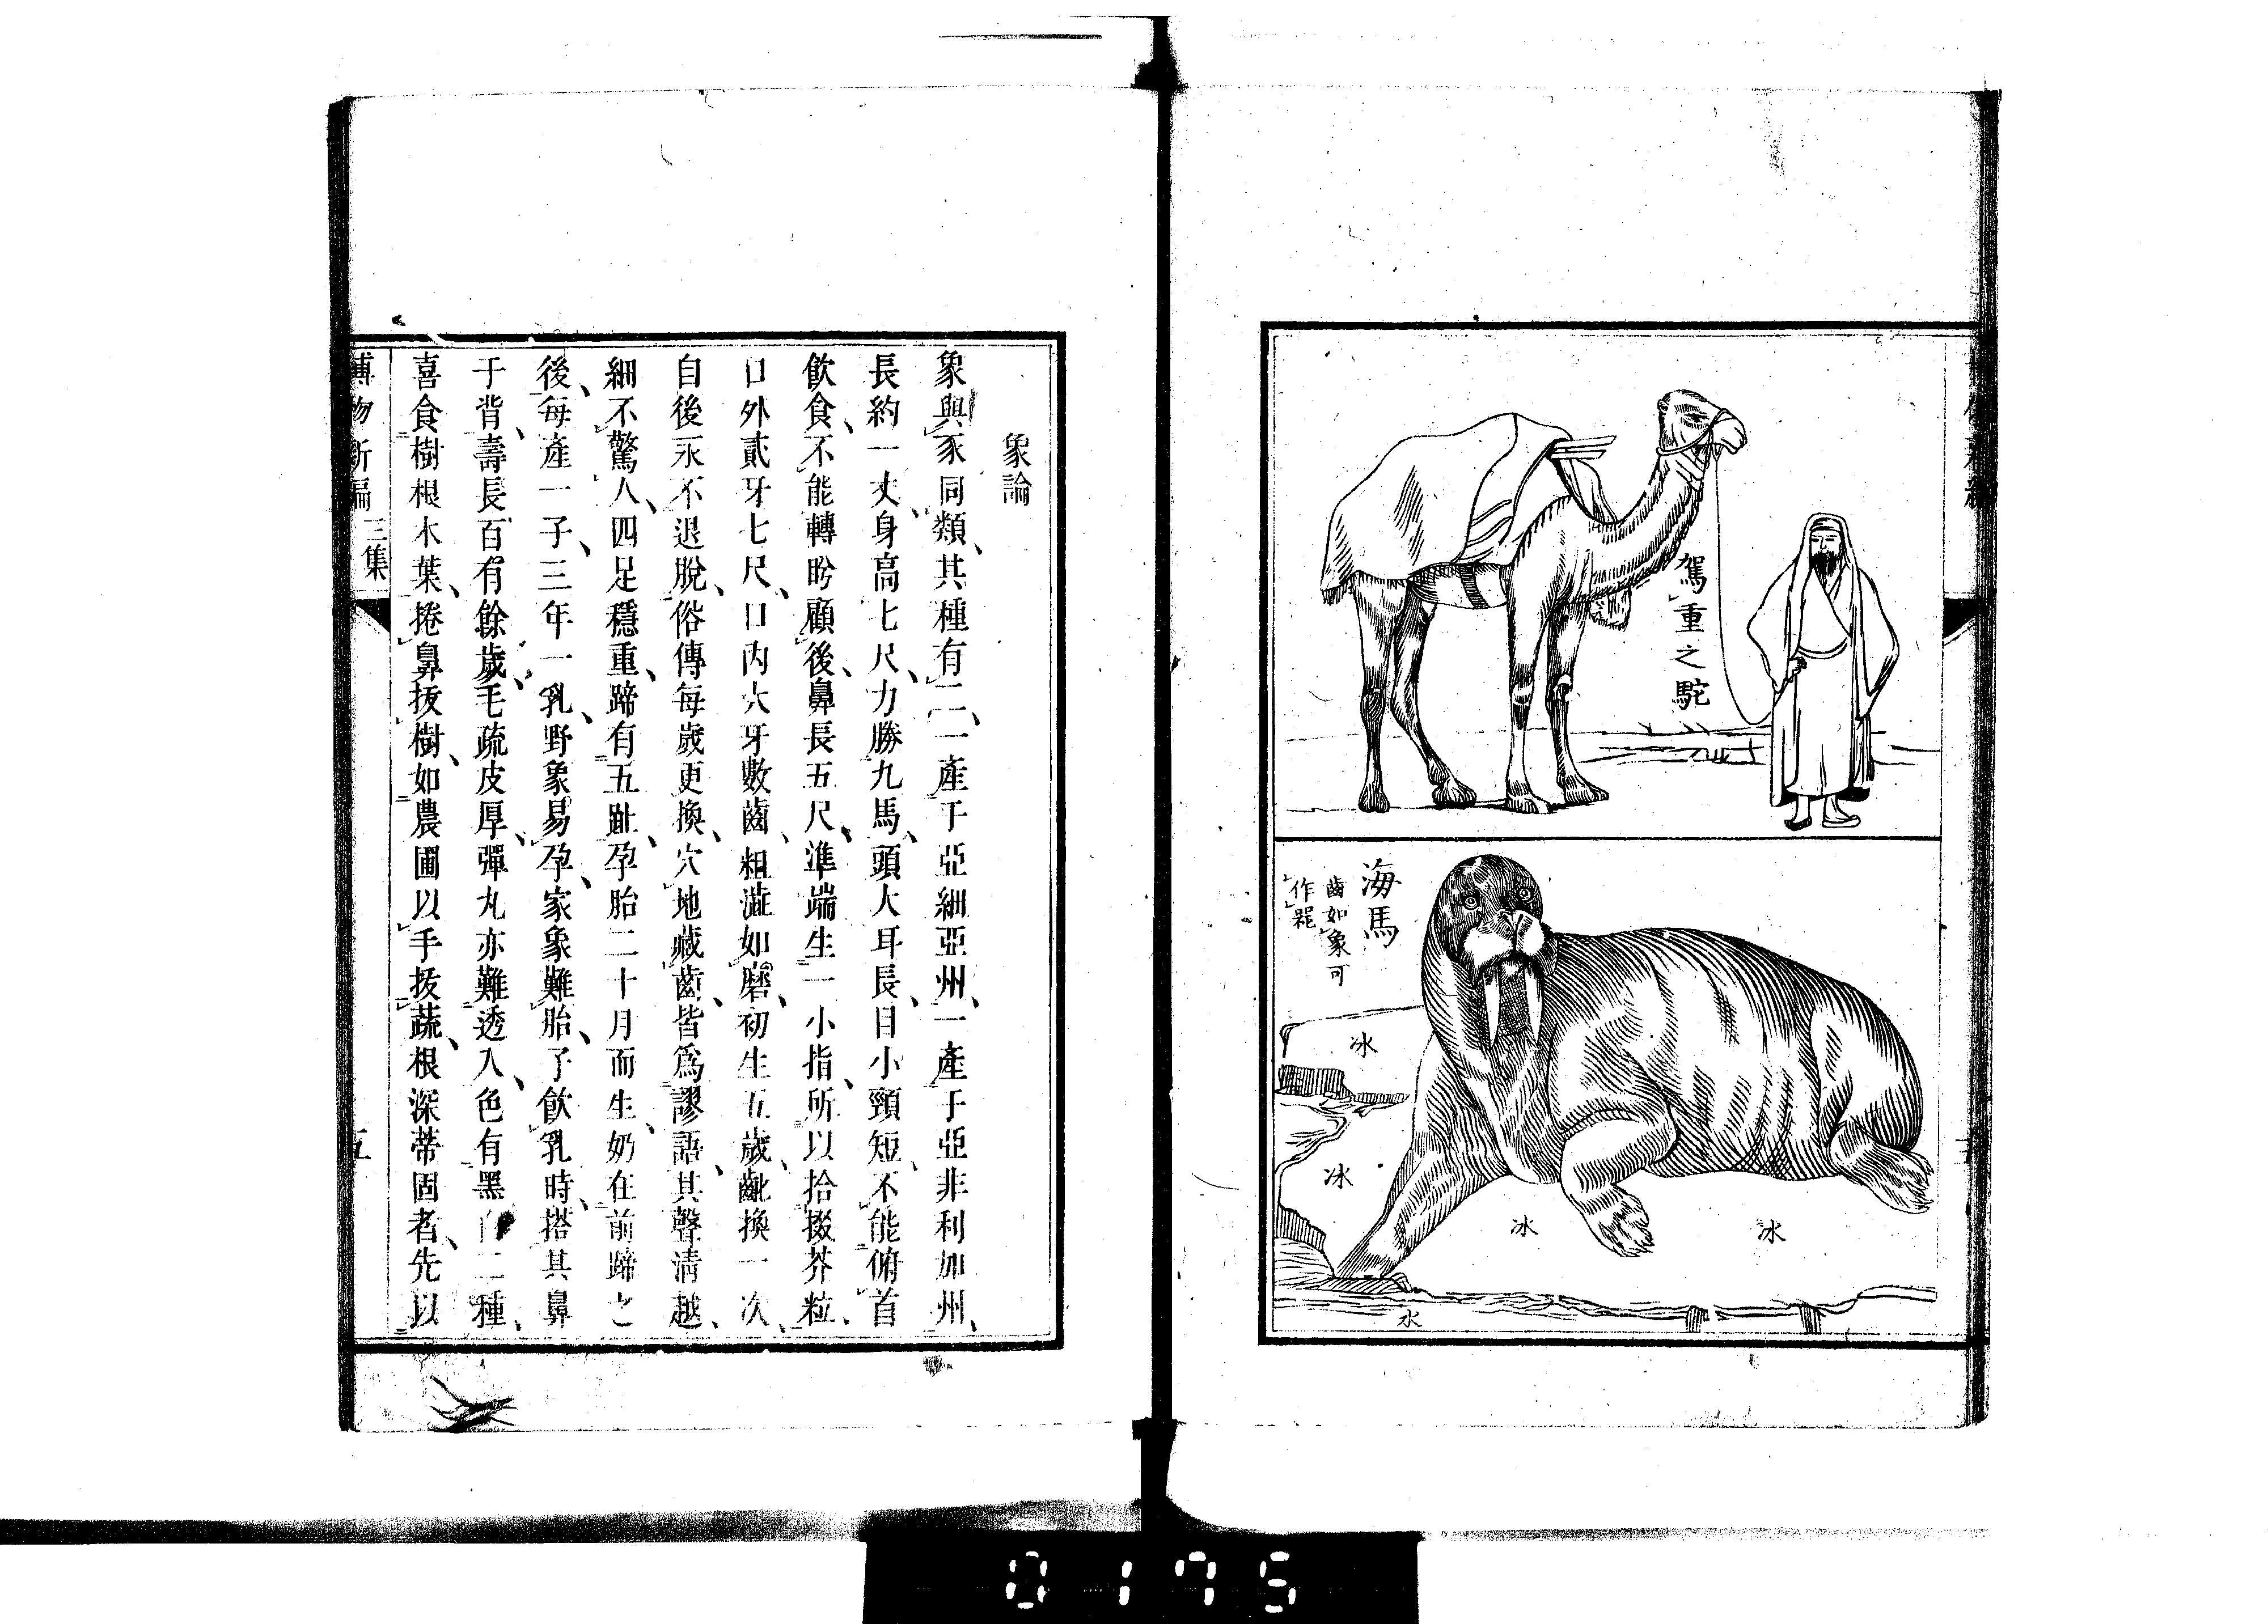 駕重之駝
海馬
齒如象可
作器
冰
冰
冰
冰
水
象論
象與豕同類、其種有二、一產于亞細亞州、一產于亞非利加州、
長約一丈、身高七尺、力勝九馬、頭大耳長、目小頸短、不能俯首
飲食、不能轉盻顧後、鼻長五尺、準端生一小指、所以拾掇芥粒、
口外貳牙七尺、口內大牙數齒、粗澁如磨、初生五歲、齔換一次、
自後永不退脫、俗傳每歲更換、穴地藏齒、皆爲謬語、其聲淸越、
細不驚人、四足穩重、蹄有五趾、孕胎二十月而生、奶在前蹄之
後、每產一子、三年一乳、野象易孕、家象難胎、子飮乳時、搭其鼻
于背、壽長百有餘歲、毛疏皮厚、彈丸亦難透入、色有黑白二種、
喜食樹根木葉、捲鼻拔樹、如農圃以手拔蔬、根深蒂固者、先以
博物新編 三集 五
0175